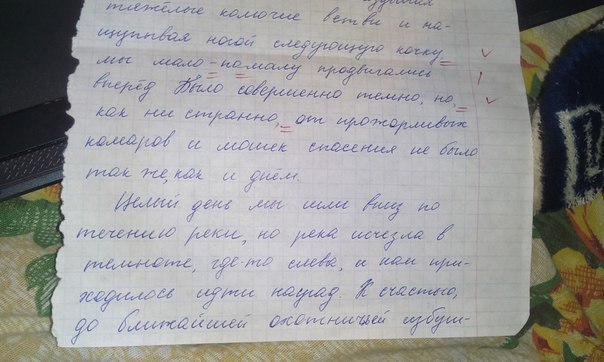 тяжёлые колючие ветви и на-
щупывая ногой следующую кочку
мы мало-помалу продвигались
вперёд Было совершенно темно, но,
как ни странно, от прожорливых
комаров и мошек спасения не было
так же, как и днём.
Целый день мы шли вниз по
течению реки, но река исчезла в
темноте, где-то слева, и нам при-
ходилось идти наугад. К счастью,
до ближайшей охотничьей избуш-